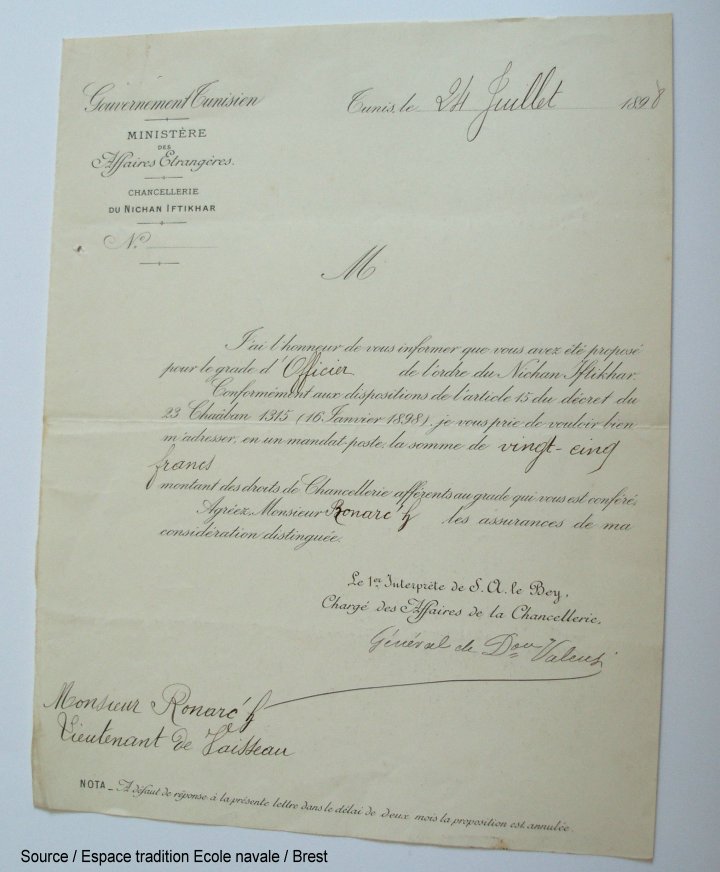 Gouvernement Tunisien
Tunis, le 24 Juillet 1898
MINISTÈRE
DES
Affaires Etrangères.
CHANCELLERIE
DU NICHAN IFTIKHAR
N.º
M
J'ai l'honneur de vous informer que vous avez été proposé
pour le grade d'Officier de l'ordre du Nichan Iftikhar.
Conformément aux dispositions de l'article 15 du décret du
23 Chaâban 1315 (16 Janvier 1898), je vous prie de vouloir bien
m'adresser, en un mandat-poste, la somme de vingt-cinq
francs
montant des droits de Chancellerie afférents au grade qui vous est conféré.
Agréez, Monsieur Ronarc'h les assurances de ma
considération distinguée.
Le 1er Interprète de S. A. le Bey,
Chargé des Affaires de la Chancellerie,
Général de Valensi
Monsieur Ronarc'h
Lieutenant de Vaisseau
NOTA _ A défaut de réponse à la présente lettre dans le délai de deux mois la proposition est annulée.
Source / Espace tradition Ecole navale / Brest